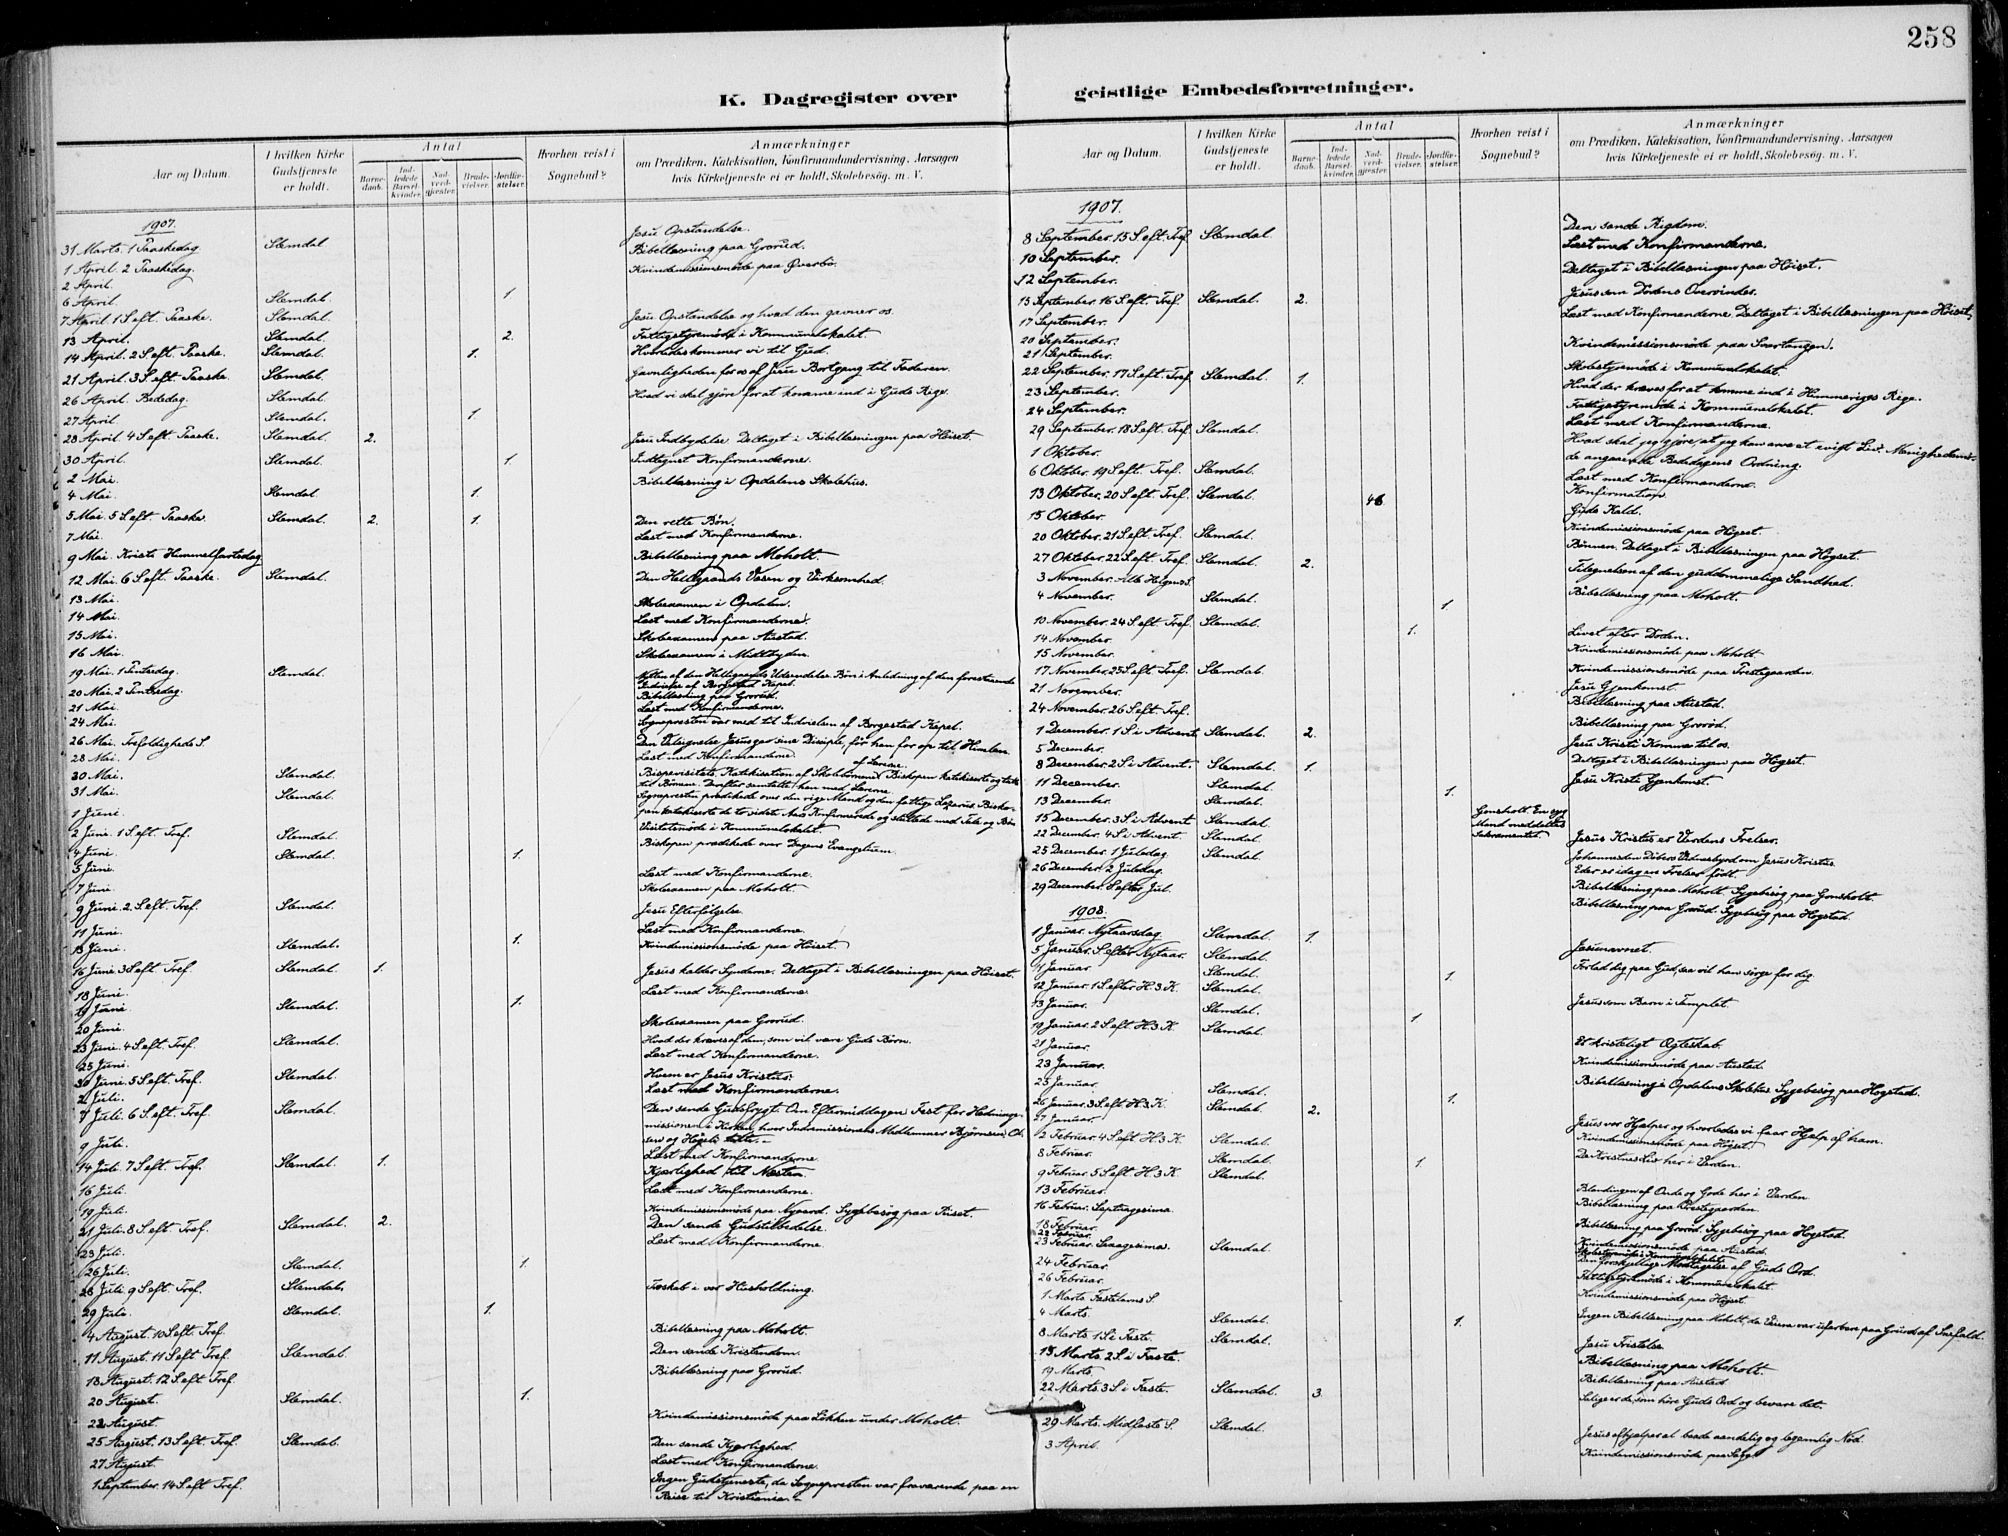 258
K. Dagregister over geistlige Embedsforretninger.
Aar og Datum.
I hvilken Kirke Gudstjeneste er holdt.
Antal
Barnedaab.
Indledede Barselkvinder.
Nadverdgjester.
Brudevielser.
Jordfæstelser.
Hvorhen reist i Sognebud?
Anmærkninger
om Prædiken, Katekisation, Konfirmandundervisning, Aarsagen
hvis Kirketjeneste ei er holdt, Skolebesøg. m. V.
1907.
31 Marts. 1 Paaskedag Slemdal Jesu Opstandelse.
1 April. 2 Paaskedag. Bibellæsning paa Grorud.
2 April. Kvindemissionsmøde paa Øverbø.
6 April. Slemdal. 1.
7 April. 1 S. eft. Paaske. Slemdal. Jesu Opstandelse og hvad den gavner os.
13 April. Slemdal. 2. Fattigstyremøde i Kommunelokalet.
14 April. 2 S. eft. Paaske. Slemdal. 1. Hvorledes kommer vi til Gud.
21 April. 3 S. eft. Paaske. Slemdal. Gavnligheden for os af Jesu Bortgang til Faderen.
26 April. Bededag. Slemdal. Hvad vi skal gjøre for at komme ind i Guds Rige.
27 April Slemdal. 1.
28 April. 4 S. eft. Paaske. Slemdal. 2. Jesu Indbydelse. Deltaget i Bibellæsningen paa Høiset.
30 April. Slemdal. 1. Indtegnet Konfirmanderne.
2 Mai. Bibellæsning i Opdalens Skolehus.
4 Mai. Slemdal 1.
5 Mai. 5 S. eft. Paaske. Slemdal. 2. 1. Den rette Bøn.
7 Mai. Læst med Konfirmanderne.
9 Mai. Kristi Himmelfartsdag Bibellæsning paa Moholt.
12 Mai. 6 S. eft. Paaske. Slemdal. Den Helligaands Væsen og Virksomhed.
13 Mai. Skoleexamen i Opdalen.
14 Mai. Læst med Konfirmanderne.
15 Mai. Skoleexamen paa Austad.
16 Mai. Skoleexamen i Midtbyden.
19 Mai. 1 Pintsedag. Slemdal. af den Helligaands Udsendelse. Bøn i Anledning af den forestaaende
Indvielse af Borgestad Kapel.
20 Mai. 2 Pintsedag. Bibellæsning paa Grorud.
21 Mai. Læst med Konfirmanderne.
24 Mai. Sognepresten var med til Indvielsen af Borgestad Kapel.
26 Mai. Trefoldigheds S. Den Velsignelse Jesus gav sine Disciple, før han for op til Himlen.
28 Mai. Læst med Konfirmanderne.
30 Mai. Slemdal. Bispevisitats. Katekisation af Skolebørnene af Lærerne. Biskopen katekiserte og talte
til Børnene. Derefter samtalte han med Lærerne.
31 Mai. Slemdal. Sognepresten prædikede over den rige Mand og den fattige Lazarus. Biskopen
katekiserte de to sidste Aars Konfirmerede og sluttede med Tale og Bøn
1 Juni. Visitatsmøde i Kommunelokalet.
2 Juni. 1 S. eft. Tref. Slemdal. Biskopen prædikede over Dagens Evangelium.
4 Juni. Slemdal. 1.
5 Juni. Læst med Konfirmanderne.
7 Juni. Skoleexamen paa Moholt.
9 Juni. 2 S. eft. Tref. Slemdal. Jesu Efterfølgelse.
11 Juni. Læst med Konfirmanderne.
13 Juni. Slemdal. 1. Kvindemissionsmøde paa Høiset.
16 Juni. 3 S. eft. Tref. Slemdal. 1. Jesus kalder Syndere. Deltaget i Bibellæsningen paa Høiset.
18 Juni. Læst med Konfirmanderne.
19 Juni. Slemdal. 1.
20 Juni. Skoleexamen paa Grorud.
23 Juni. 4 S. eft. Tref. Slemdal. Hvad der kræves af dem, som vil være Guds Børn.
25 Juni. Læst med Konfirmanderne.
30 Juni. 5 S. eft. Tref. Slemdal. Hvem er Jesus Kristus.
2 Juli. Læst med Konfirmanderne.
7 Juli. 6 S. eft. Tref. Slemdal. Den sande Gudsfrygt. Om Eftermiddagen Fest for Hedningemissionen
i Kirken, hvor Indremissionens Medlemmer Bjørnsen,
og talte.
9 Juli. Læst med Konfirmanderne.
14 Juli. 7 S. eft. Tref. Slemdal. 1. Kjærlighed til Næsten.
16 Juli. Læst med Konfirmanderne.
19 Juli. Kvindemissionsmøde paa Nygaard. Sygebesøg paa Riset.
21 Juli. 8 S. eft. Tref. Slemdal. 2. Den sande Gudstilbedelse.
23 Juli. Læst med Konfirmanderne.
26 Juli. Slemdal. 1.
28 Juli. 9 S. eft. Tref. Slemdal. Troskab i vor Husholdning.
29 Juli. Slemdal. 1.
4 August. 10 S. eft. Tref. Bibellæsning paa Moholt.
11 August. 11 S. eft. Tref. Slemdal. Den sande Kristendom.
18 August. 12 S. eft. Tref. Bibellæsning paa Grorud.
20 August. Slemdal. 1.
22 August. Kvindemissionsmøde paa Løkken under Moholt.
25 August. 13 S. eft. Tref. Slemdal. Den sande Kjærlighed.
27 August. Læst med Konfirmanderne.
1 September. 14 S. eft. Tref. Ingen Gudstjeneste, da Sognepresten var fraværende paa en
Reise til Kristiania.
Aar og Datum.
I hvilken Kirke Gudstjeneste er holdt.
Antal
Barnedaab.
Indledede Barselkvinder.
Nadverdgjester.
Brudevielser.
Jordfæstelser.
Hvorhen reist i Sognebud?
Anmærkninger
om Prædiken, Katekisation, Konfirmandundervisning, Aarsagen
hvis Kirketjeneste ei er holdt, Skolebesøg. m. V.
1907.
8 September. 15 S. eft. Tref. Slemdal. Den sande Rigdom.
10 September. Læst med Konfirmanderne.
12 September. Deltaget i Bibellæsningen paa Høiset.
15 September. 16 S. eft. Tref. Slemdal. 2. Jesus som Dødens Overvinder.
17 September. Læst med Konfirmanderne. Deltaget i Bibellæsningen paa Høiset.
20 September. Kvindemissionsmøde paa Svartangen.
21 September. Skolestyremøde i Kommunelokalet.
22 September. 17 S. eft. Tref. Slemdal. 1. Hvad der kræves for at komme ind i Himmeriges Rige.
23 September. Fattigstyremøde i Kommunelokalet.
24 September. Læst med Konfirmanderne.
29 September. 18 S. eft. Tref. Slemdal. Hvad skal jeg gjøre, at jeg kan arve et evigt Liv. Menighedsmøde
angaaende Bededagens Ordning.
1 Oktober. Læst med Konfirmanderne.
6 Oktober. 19 S. eft. Tref. Slemdal. Konfirmation.
13 Oktober. 20 S. eft. Tref. Slemdal. 46 Guds Kald.
15 Oktober. Kvindemissionsmøde paa Høgset.
20 Oktober. 21 S. eft. Tref. Slemdal. Bønnen. Deltaget i Bibellæsningen paa Høgset.
27 Oktober. 22 S. eft. Tref. Slemdal. 2. Tilegnelsen af den guddommelige Sandhed.
3 November. Alle Helgens S. Bibellæsning paa Moholt.
4 November. Slemdal. 1.
10 November. 24 S. eft. Tref. Slemdal. 1. Livet efter Døden.
14 November. Kvindemissionsmøde paa Moholt.
15 November. Kvindemissionsmøde paa Prestegaarden.
17 November. 25 S. eft. Tref. Slemdal. Jesu Gjenkomst.
21 November. Bibellæsning paa Austad.
24 November. 26 S. eft. Tref. Bibellæsning paa Grorød.
1 December. 1 S. i Advent. Slemdal. 2. Jesu Kristi Komme til os.
5 December. Deltaget i Bibellæsningen paa Høgset.
8 December. 2 S. i Advent. Slemdal. 1. Jesu Kristi Gjenkomst.
11 December. Slemdal. 1.
13 December. Slemdal. Gonsholt. En syg Mand meddeltes Sakramentet.
15 December. 3 S. i Advent Slemdal. Jesus Kristus er Verdens Frelser.
22 December. 4 S. i Advent. Slemdal. Johannes den Døbers Vidnesbyrd om Jesus Kristus.
25 December. 1 Juledag. Slemdal. Eder er idag en Frelser født.
26 December. 2 Juledag. Bibellæsning paa Moholt. Sygebesøg paa Gonsholt.
29 December. S. efter Jul. Bibellæsning paa Grorud. Sygebesøg paa Hogstad.
1908.
1 Januar. Nytaarsdag. Slemdal. 1. Jesunavnet.
5 Januar. S. efter Nytaar. Slemdal. Forlad dig paa Gud, saa vil han sørge for dig
Januar. Slemdal. 1.
12 Januar. 1 S. efter H. 3 K. Slemdal. Jesus som Barn i Templet.
13 Januar. Slemdal. 1
19 Januar. 2 S. eft. H. 3 K. Slemdal. Et kristeligt Ægteskab.
21 Januar. Kvindemissionsmøde paa Austad.
23 Januar. Bibellæsning i Opdalens Skolehus. Sygebesøg paa Hogstad.
25 Januar. Slemdal. 1.
26 Januar. 3 S. eft. H. 3 K. Slemdal. 2. Jesus vor Hjælper og hvorledes vi faar Hjælp af ham.
27 Januar. Kvindemissionsmøde paa Høgset.
2 Februar. 4 S. eft. H. 3 K. Slemdal. De Kristnes Liv her i Verden.
8 Februar. Slemdal. 1.
9 Februar. 5 S. eft. H. 3 K. Slemdal. Blandingen af Onde og Gode her i Verden
13 Februar. Bibellæsning paa Prestegaarden.
16 Februar. Septuagesima. Bibellæsning paa Grorød. Sygebesøg paa Hogstad.
18 Februar. Kvindemissionsmøde paa Austad.
22 Februar. Skolestyremøde i Kommunelokalet.
23 Februar. Sexagesima. Slemdal. Den forskjellige Modtagelse af Guds Ord.
24 Februar. Fattigstyremøde i Kommunelokalet.
26 Februar. Kvindemissionsmøde paa Høgset.
1 Marts. Fastelavns S. Ingen Bibellæsning paa Moholt, da Veiene var ufarbare paa Grund af Snefald.
4 Marts. Slemdal. 1.
8 Marts. 1 S. i Faste. Slemdal. Jesu Fristelse.
15 Marts. 2 S. i Faste. Bibellæsning paa Moholt.
19 Marts. Bibellæsning paa Austad
22 Marts. 3 S. i Faste. Slemdal. 3 Salige er de, som høre Guds Ord og bevare det.
29 Marts. Midfaste S. Slemdal. Jesus afhjælper al baade aandelig og legemlig Nød.
3 April. Kvindemissionsmøde paa